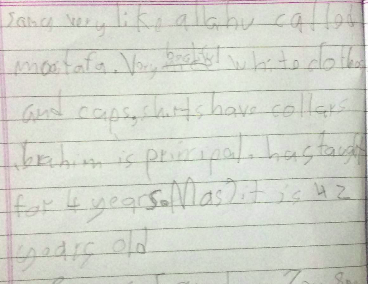 very like allahu called
mostafa. Very white clothes
and caps, shirts have collars.
ibrahim is principal. has taught
for 4 years. Masjit is 42
years old